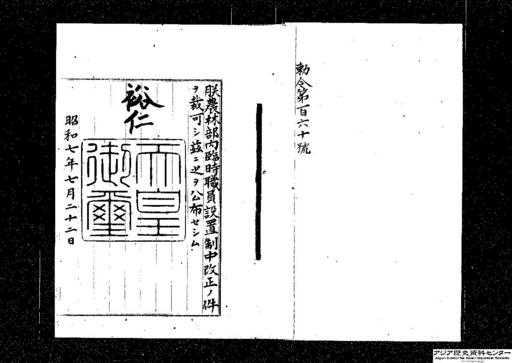 勅令第百六十號
朕農林部內臨時職員設置制中改正ノ件
ヲ裁可シ茲ニ之ヲ公布セシム
裕仁
天皇
御璽
昭和七年七月二十二日
アジア歴史資料センター
Japan Center for Asian Historical Records